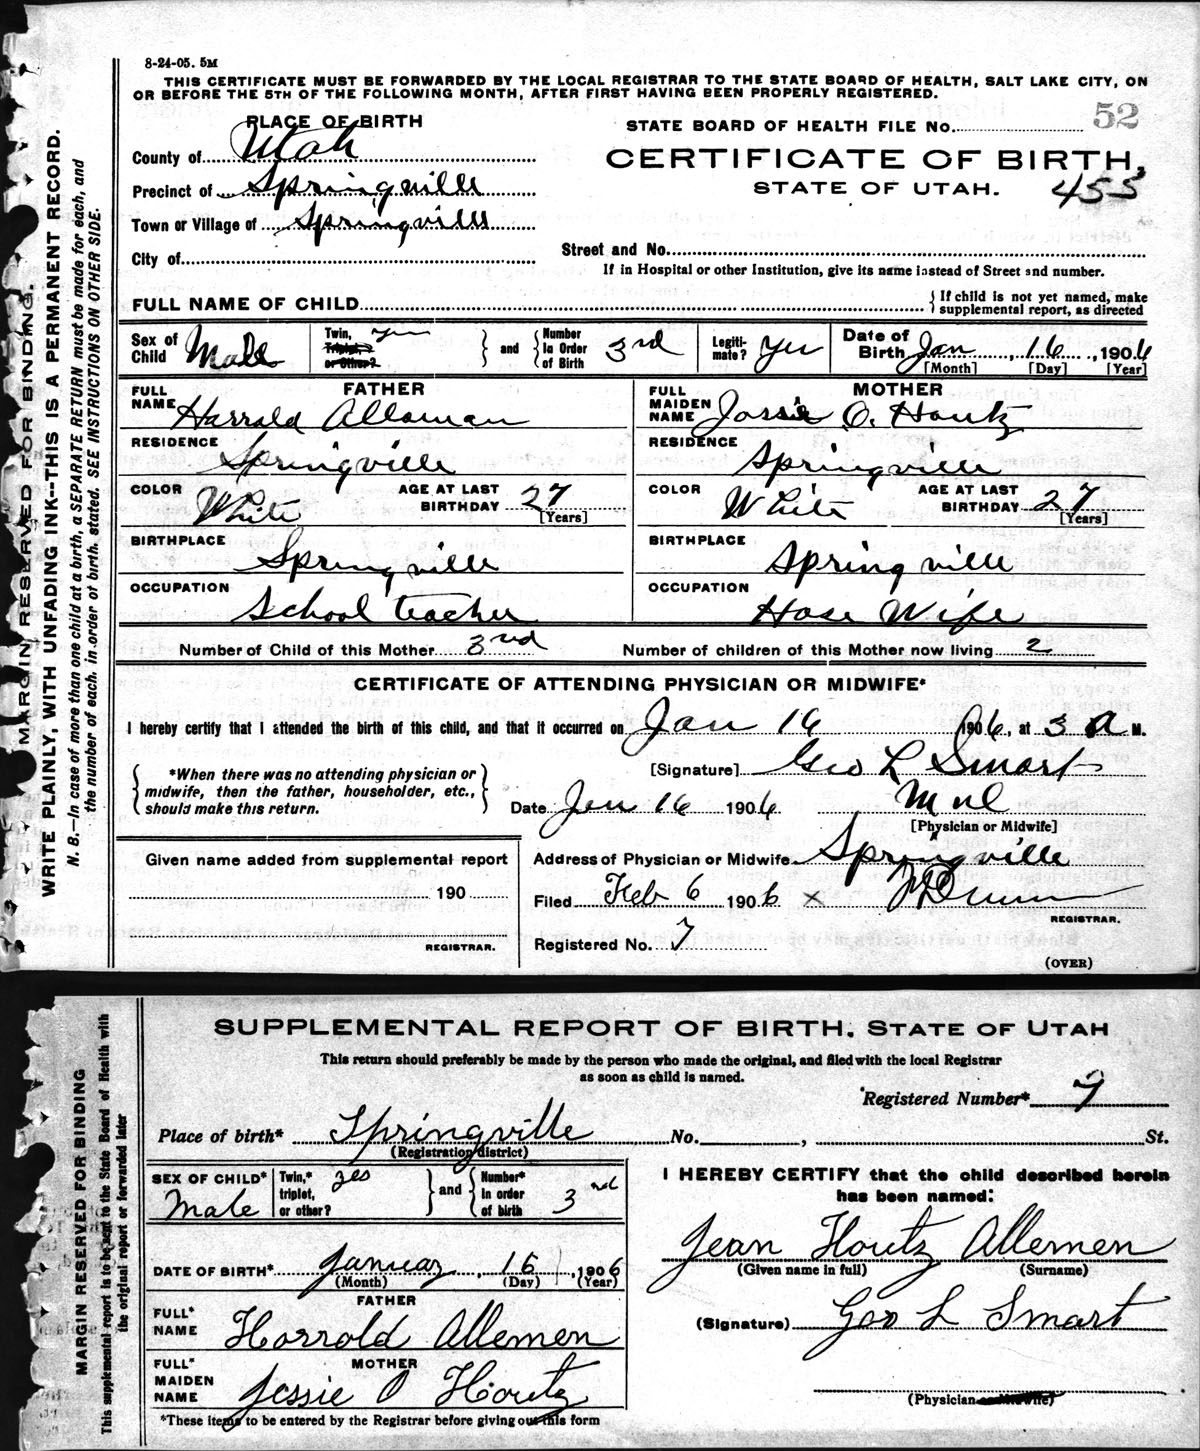 8-24-05. 5M
THIS CERTIFICATE MUST BE FORWARDED BY THE LOCAL REGISTRAR TO THE STATE BOARD OF HEALTH, SALT LAKE CITY, ON
OR BEFORE THE 5TH OF THE FOLLOWING MONTH, AFTER FIRST HAVING BEEN PROPERLY REGISTERED.
PLACE OF BIRTH
STATE BOARD OF HEALTH FILE No. 52
County of Utah
CERTIFICATE OF BIRTH,
Precinct of Springville
STATE OF UTAH. 455
Town or Village of Springville
City of
Street and No.
If in Hospital or other Institution, give its name instead of Street and number.
FULL NAME OF CHILD
{ If child is not yet named, make
supplemental report, as directed
Sex of Child Male
Twin, Triplet, or Other? yes
and
Number in Order of Birth 3rd
Legiti-mate? Yes
Date of Birth Jan 16 1906
[Month] [Day] [Year]
FATHER
FULL NAME Harrald Alleman
RESIDENCE Springville
COLOR White
AGE AT LAST BIRTHDAY 27
[Years]
BIRTHPLACE Springville
OCCUPATION School teacher
MOTHER
FULL MAIDEN NAME Jossie O. Houtz
RESIDENCE Springville
COLOR White
AGE AT LAST BIRTHDAY 27
[Years]
BIRTHPLACE Springville
OCCUPATION Hose Wife
Number of Child of this Mother 3rd
Number of children of this Mother now living 2
CERTIFICATE OF ATTENDING PHYSICIAN OR MIDWIFE*
I hereby certify that I attended the birth of this child, and that it occurred on Jan 16 1906, at 3 A M.
{ *When there was no attending physician or
midwife, then the father, householder, etc.,
should make this return. }
[Signature] Geo L Smart
Date Jan 16 1906
[Physician or Midwife]
Given name added from supplemental report
190
REGISTRAR.
Address of Physician or Midwife Springville
Filed Feb 6 1906 x
REGISTRAR.
Registered No. 7
(OVER)
MARGIN RESERVED FOR BINDING.
WRITE PLAINLY, WITH UNFADING INK--THIS IS A PERMANENT RECORD.
N. B.—In case of more than one child at a birth, a SEPARATE RETURN must be made for each, and
the number of each, in order of birth, stated. SEE INSTRUCTIONS ON OTHER SIDE.
SUPPLEMENTAL REPORT OF BIRTH. STATE OF UTAH
This return should preferably be made by the person who made the original, and filed with the local Registrar
as soon as child is named.
Registered Number* 7
Place of birth* Springville No. , St.
(Registration district)
SEX OF CHILD* Male
Twin,* triplet, or other? yes
and
Number* in order of birth 3rd
DATE OF BIRTH* January 16, 1906
(Month) (Day) (Year)
FATHER
FULL* NAME Horrold Allemen
MOTHER
FULL* MAIDEN NAME Jessie O Houtz
*These items to be entered by the Registrar before giving out this form
I HEREBY CERTIFY that the child described herein
has been named:
Jean Houtz Allemen
(Given name in full) (Surname)
(Signature) Geo L Smart
(Physician or Midwife)
MARGIN RESERVED FOR BINDING
This supplemental report is to be sent to the State Board of Health with
the original report or forwarded later